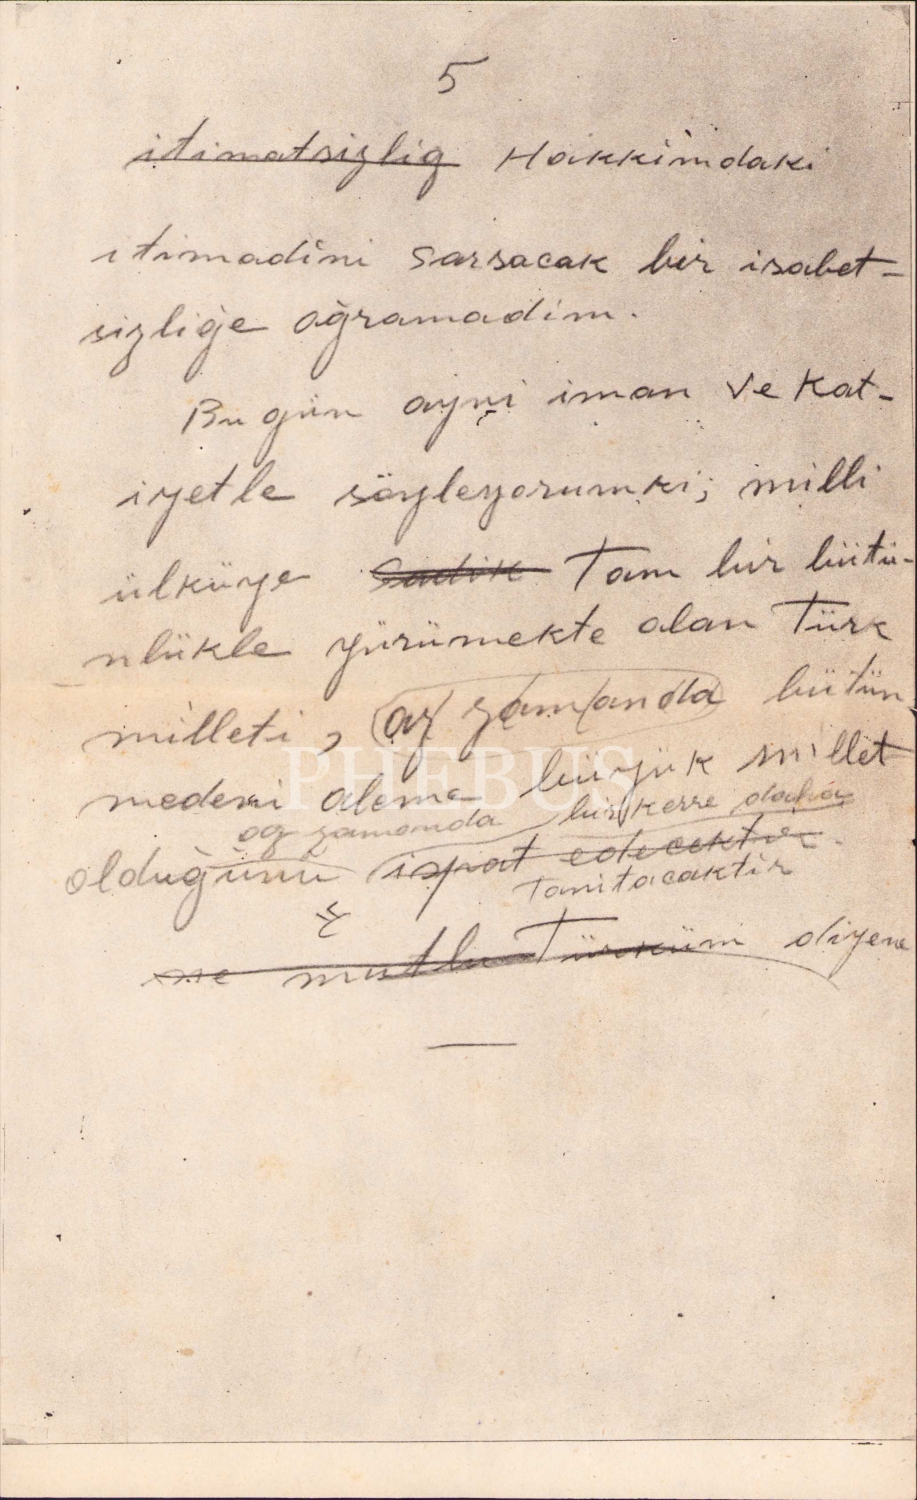 5
itimatsizlig Hakkimdaki
itimadini sarsacak bir isabet-
sizliğe oğramadim.
Bu gün ayni iman ve kat-
iyetle söyleyorumki; milli
ülküye sadik Tam bir bütü-
nlükle yürümekte olan Türk
milleti, az zamanda bütün
medeni aleme büyük millet
az zamanda bir kerre daha
olduğunu ispat edecektir.
Tanitacaktir
ne mutlu Türküm diyene
PHEBUS